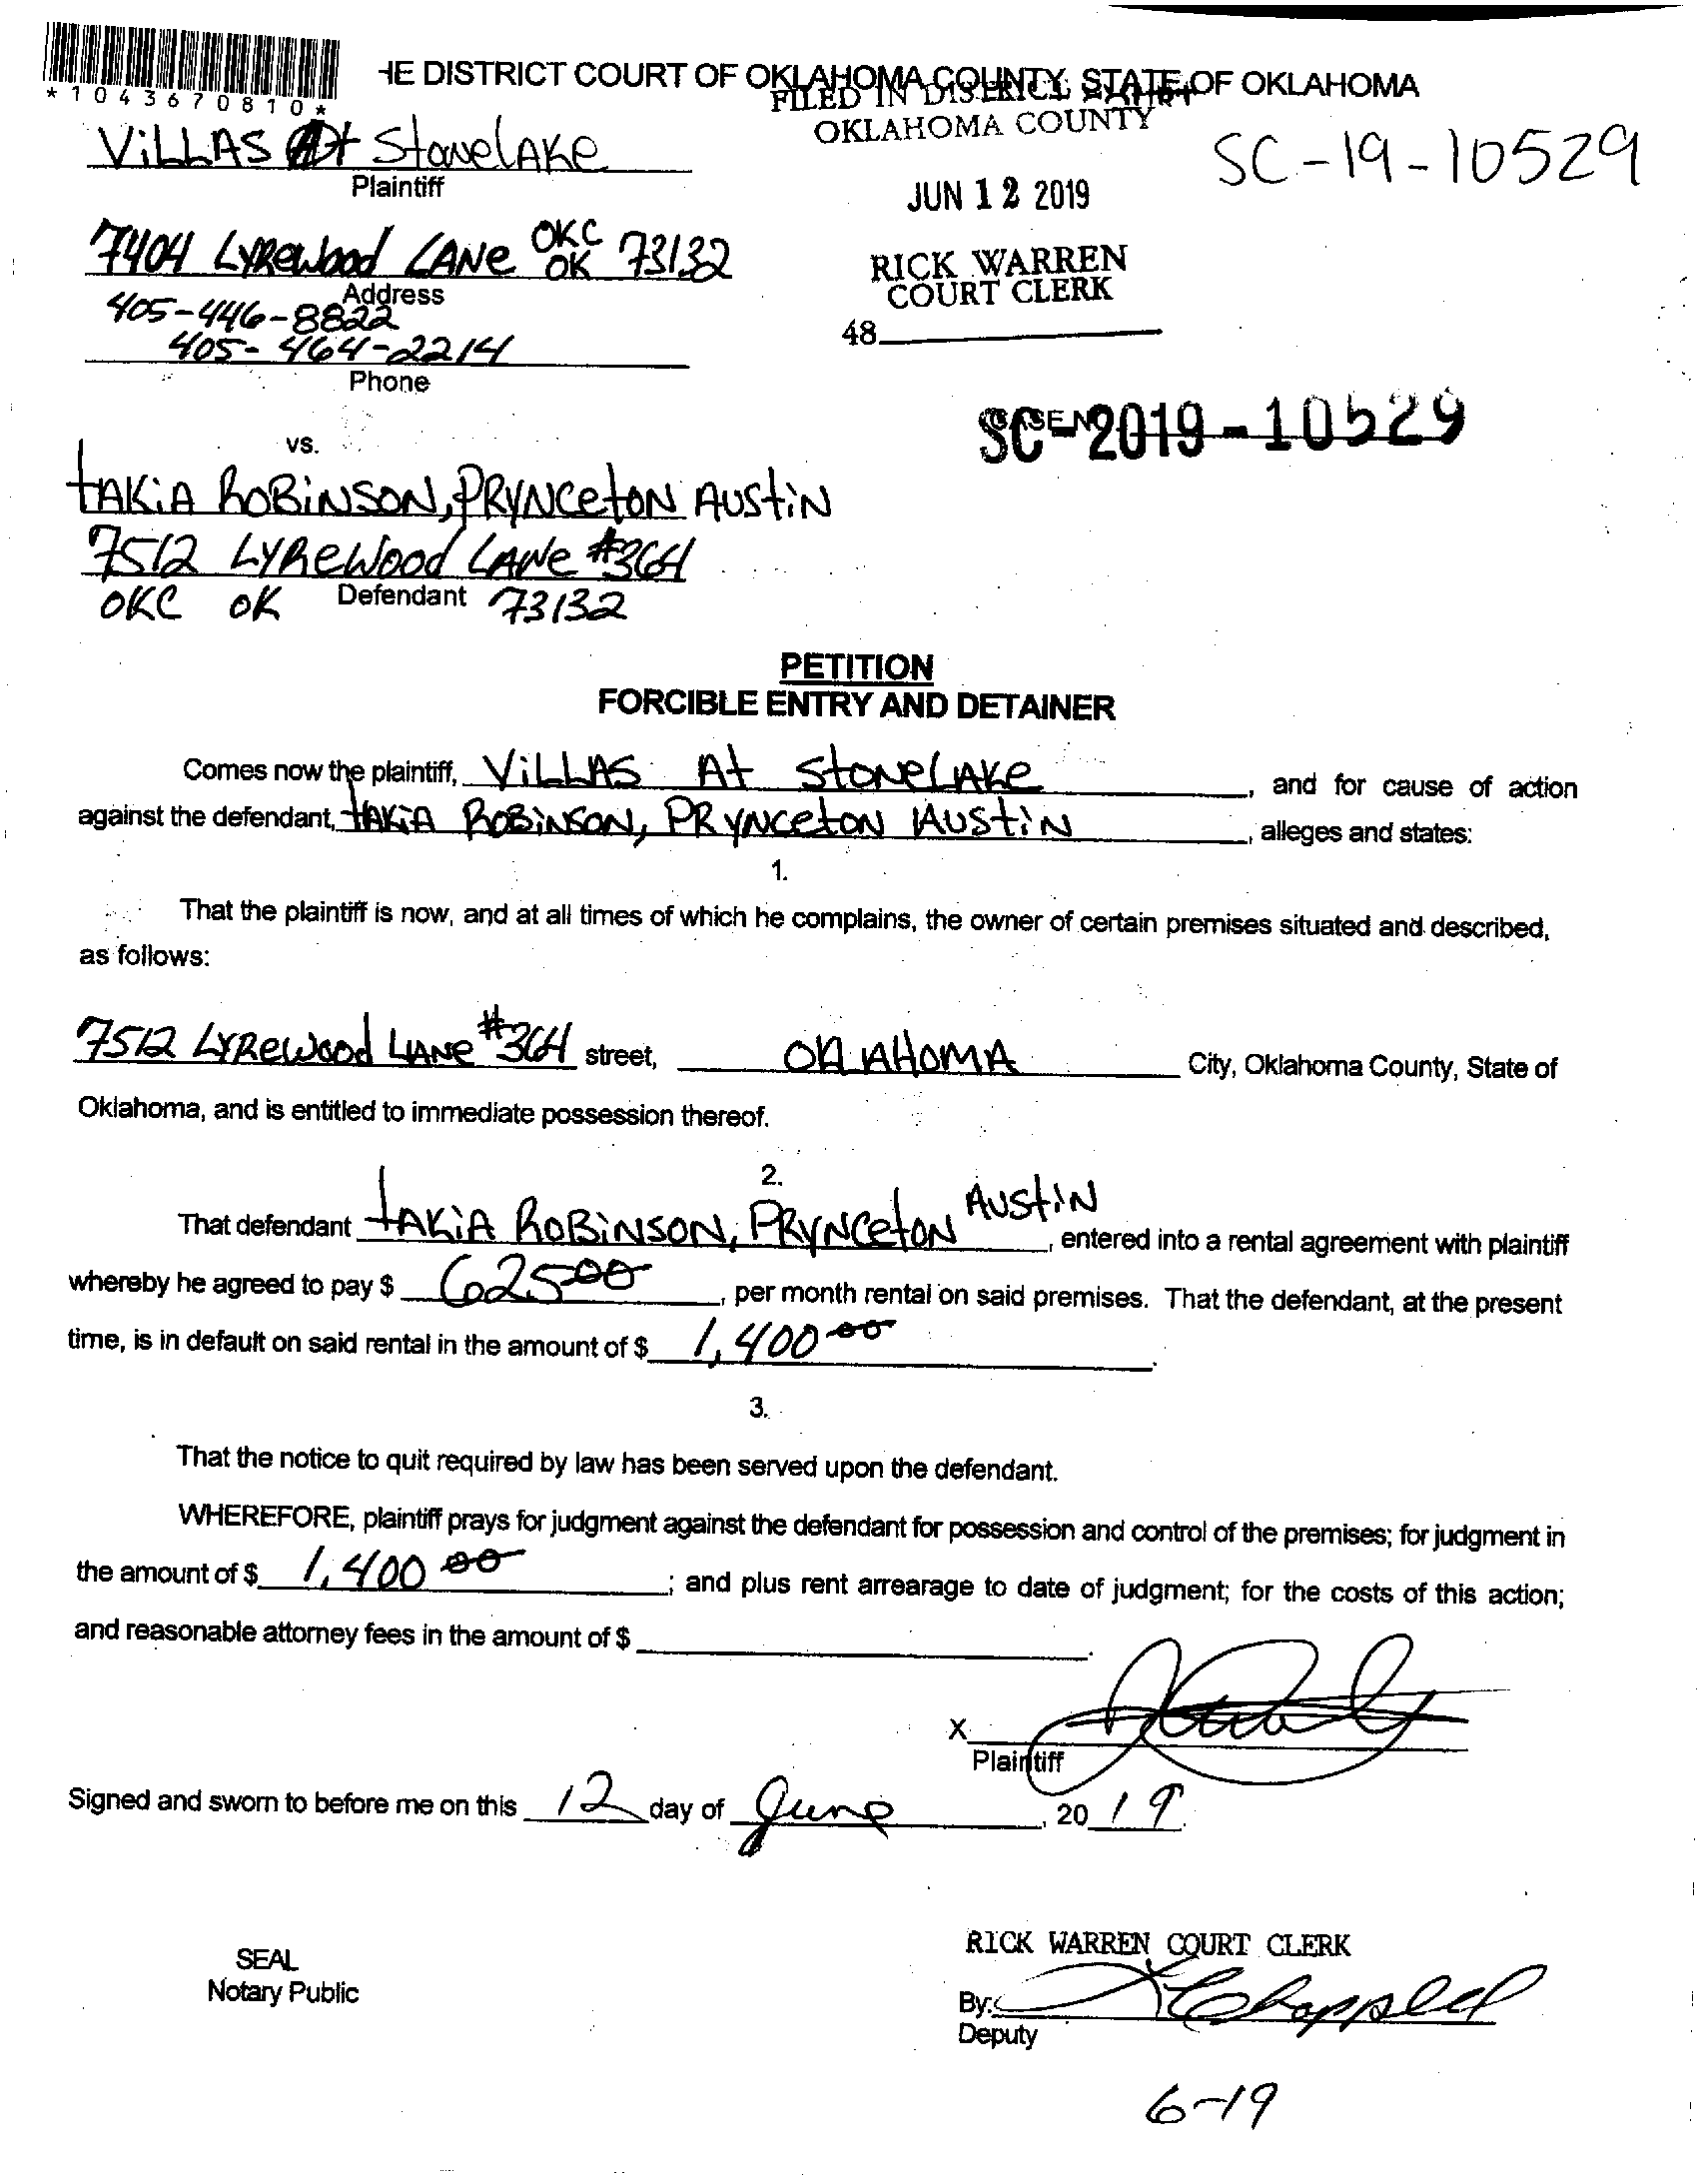 *1043670810*
HE DISTRICT COURT OF OKLAHOMA COUNTY, STATE OF OKLAHOMA
FILED IN DISTRICT COURT
OKLAHOMA COUNTY
SC-19-10529
VILLAS At StoneLAKe
Plaintiff
JUN 12 2019
7404 LYRewood LANe OKC OK 73132
Address
RICK WARREN
COURT CLERK
405-446-8822
405-464-2214
48
Phone
SC-2019-10529
vs.
tAKiA RoBiNSON, PRYNCetoN AUStiN
7512 LYRewood LANe #364
Defendant
OKC OK 73132
PETITION
FORCIBLE ENTRY AND DETAINER
Comes now the plaintiff, ViLLAS At StoneLAKe, and for cause of action
against the defendant, tAKiA RoBiNSON, PRYNCetoN AUStiN, alleges and states:
1.
That the plaintiff is now, and at all times of which he complains, the owner of certain premises situated and described,
as follows:
7512 LYRewood LANe #364 street, OKLAHOMA City, Oklahoma County, State of
Oklahoma, and is entitled to immediate possession thereof.
2.
That defendant tAKiA RoBiNSON, PRYNCetoN AUStiN, entered into a rental agreement with plaintiff
whereby he agreed to pay $ 625.00, per month rental on said premises. That the defendant, at the present
time, is in default on said rental in the amount of $ 1,400 00.
3.
That the notice to quit required by law has been served upon the defendant.
WHEREFORE, plaintiff prays for judgment against the defendant for possession and control of the premises; for judgment in
the amount of $ 1,400 00; and plus rent arrearage to date of judgment; for the costs of this action;
and reasonable attorney fees in the amount of $
X
Plaintiff
Signed and sworn to before me on this 12 day of June, 20 19.
RICK WARREN COURT CLERK
SEAL
Notary Public
By:
Deputy
6-19